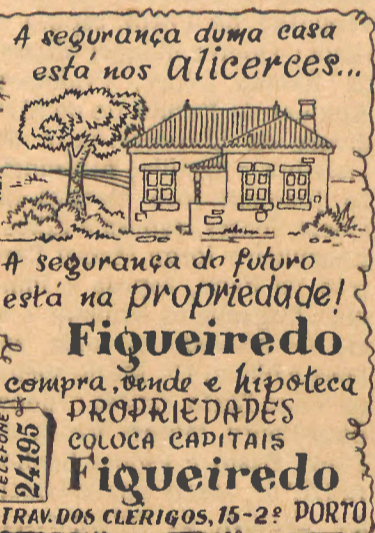 A segurança duma casa
está nos alicerces...
A segurança do futuro
está na propriedade!
Figueiredo
compra, vende e hipoteca
PROPRIEDADES
COLOCA CAPITAIS
TELEFONE
24195
Figueiredo
TRAV. DOS CLÉRIGOS, 15-2º PORTO